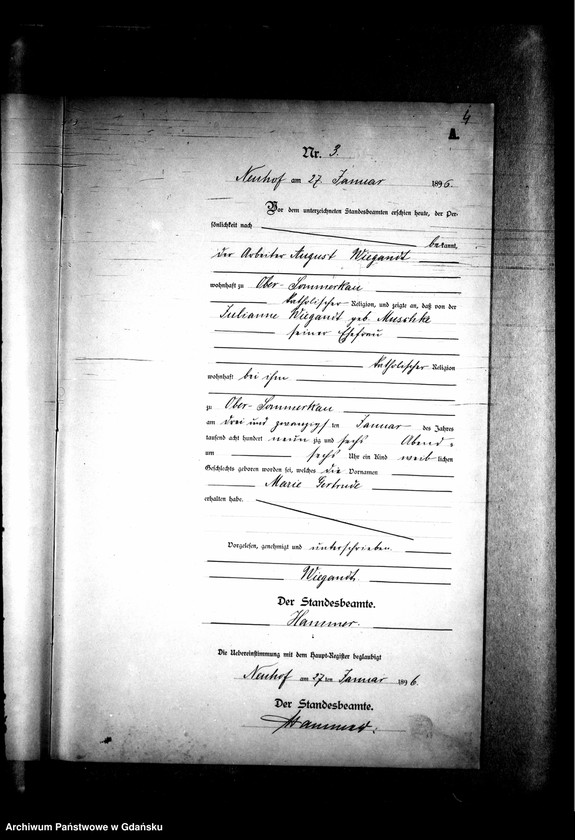 4
A.
Nr. 3.
Neuhof am 27. Januar 1896.
Vor dem unterzeichneten Standesbeamten erschien heute, der Per-
sönlichkeit nach
bekannt,
der Arbeiter August Wiegandt
wohnhaft zu Ober-Sommerkau
katholischer Religion, und zeigte an, daß von der
Julianne Wiegandt geb. Muschke
seiner Ehefrau
katholischer Religion
wohnhaft bei ihm
zu Ober-Sommerkau
am drei und zwanzigsten Januar des Jahres
tausend acht hundert neunzig und sechs Abends
um sechs Uhr ein Kind weiblichen
Geschlechts geboren worden sei, welches die Vornamen
Marie Gertrude
erhalten habe.
Vorgelesen, genehmigt und unterschrieben.
Wiegandt.
Der Standesbeamte.
Hammer.
Die Uebereinstimmung mit dem Haupt-Register beglaubigt
Neuhof am 27ten Januar 1896.
Der Standesbeamte.
Hammer.
Archiwum Państwowe w Gdańsku